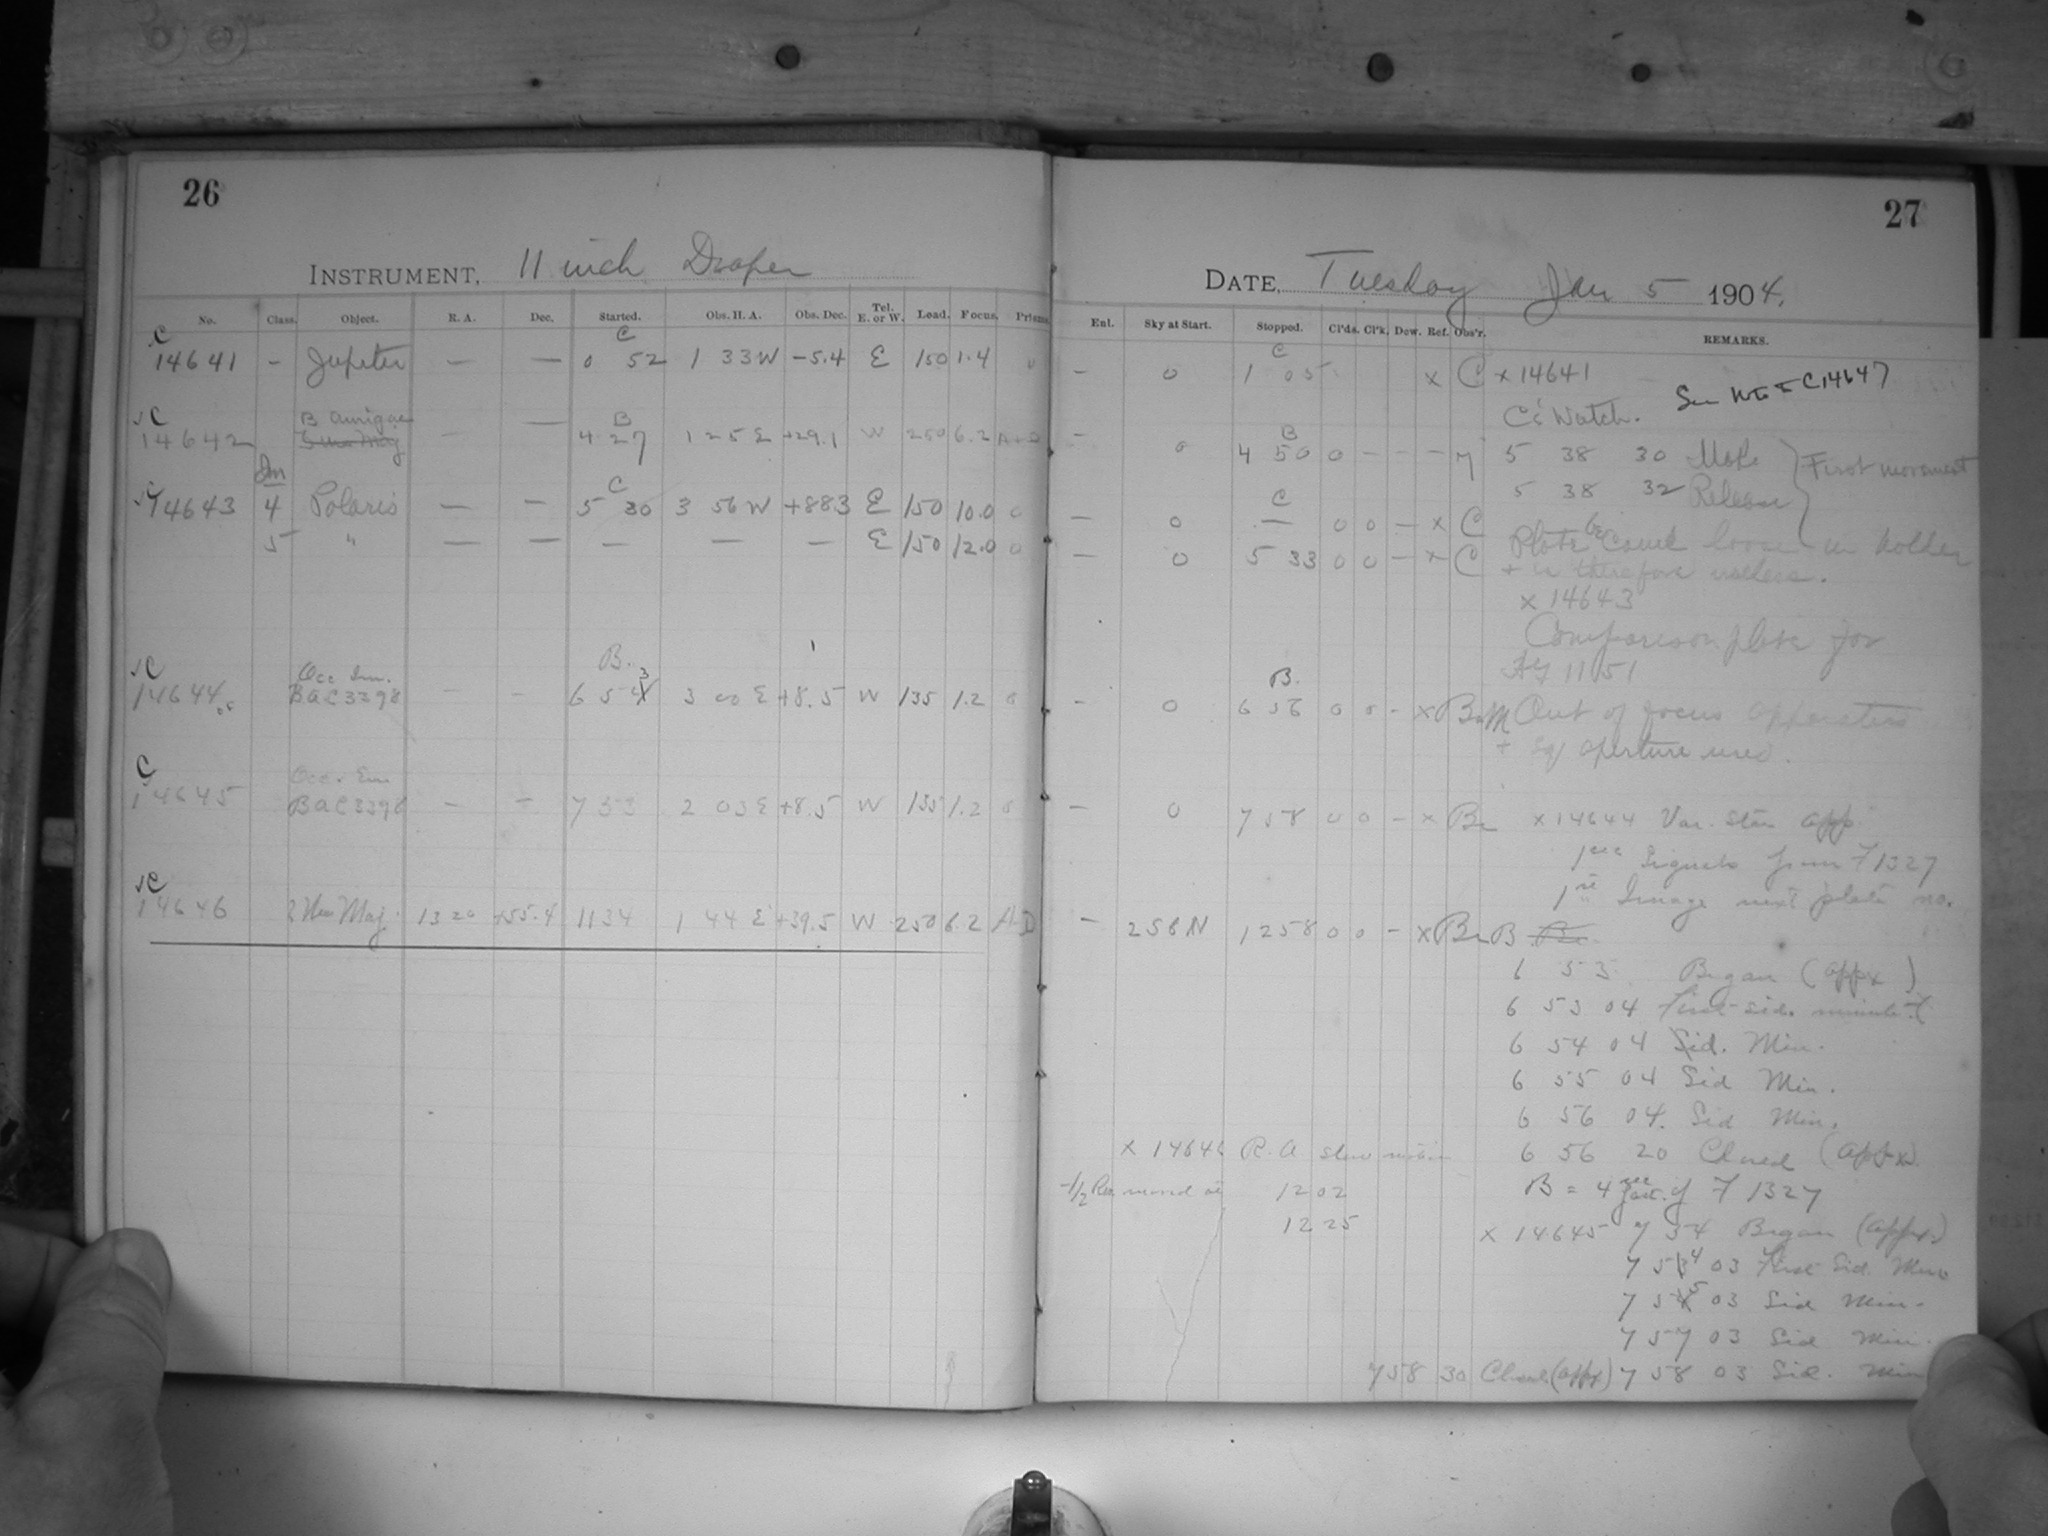 26
INSTRUMENT, 11 inch Draper
No. Class. Object. R. A. Dec. Started. Obs. H. A. Obs. Dec. Tel. E. or W. Load. Focus. Prisms.
C C
14641 - Jupiter — — 0 52 1 33 W -5.4 E 150 1.4 0
C B Aurigae B
14642 — — 4 27 1 25 E +29.1 W 250 6.2
C C
14643 4 Polaris — — 5 30 3 56 W +88.3 E 150 10.0 0
5 " — — — — — E 150 12.0 0
C Occ Im. B. 3
14644 BAC 3398 - - 6 54 3 00 E +8.5 W 135 1.2 0
C Occ. Em
14645 BAC 3398 - - 7 53 2 03 E +8.5 W 135 1.2 0
C
14646 Maj. 13 20 +55.4 11 34 1 44 E +39.5 W 250 6.2
27
DATE, Tuesday Jan 5 1904.
Enl. Sky at Start. Stopped. Cl'ds. Cl'k. Dew. Ref. Obs'r. REMARKS.
C
- 0 1 05 x C x 14641 See C14647
C's Watch.
B
- 0 4 50 0 - - - 5 38 30 Make First movement
5 38 32 Release
C
- 0 — 0 0 - x C Plate became loose in holder
- 0 5 33 0 0 - x C + is therefore useless.
x 14643
Comparison plate for
B.
- 0 6 56 0 0 - x Out of focus apparatus
+ sq aperture used.
- 0 7 58 0 0 - x Br x 14644 Var. Star app.
signals from F 1327
1st Image next plate no.
- 258 N 12 58 0 0 - x Br B Br
6 53 Began (appx)
6 53 04 First sid. minute
6 54 04 Sid. Min.
6 55 04 Sid Min.
6 56 04. Sid Min.
x 14646 R.A slow motion 6 56 20 Closed (appx)
-1/2 at 12 02 B = 4 sec fast of F 1327
12 25
x 14645 7 54 Began (appx)
7 54 03 First Sid. Min
7 55 03 Sid Min.
7 57 03 Sid Min.
7 58 30 Closed (appx) 7 58 03 Sid. Min